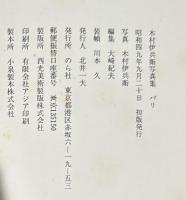 木村伊兵衛写真集　パリ
昭和四九年九月二十日　初版発行
写真　木村伊兵衛
編集　大崎紀夫
装幀　川本 久
発行人　北井一夫
発行所　のら社　東京都港区赤坂六―一九―五三
郵便振替口座番号　東京135150
製版所　西光美術製版株式会社
印刷所　有限会社アジア印刷
製本所　小泉製本株式会社